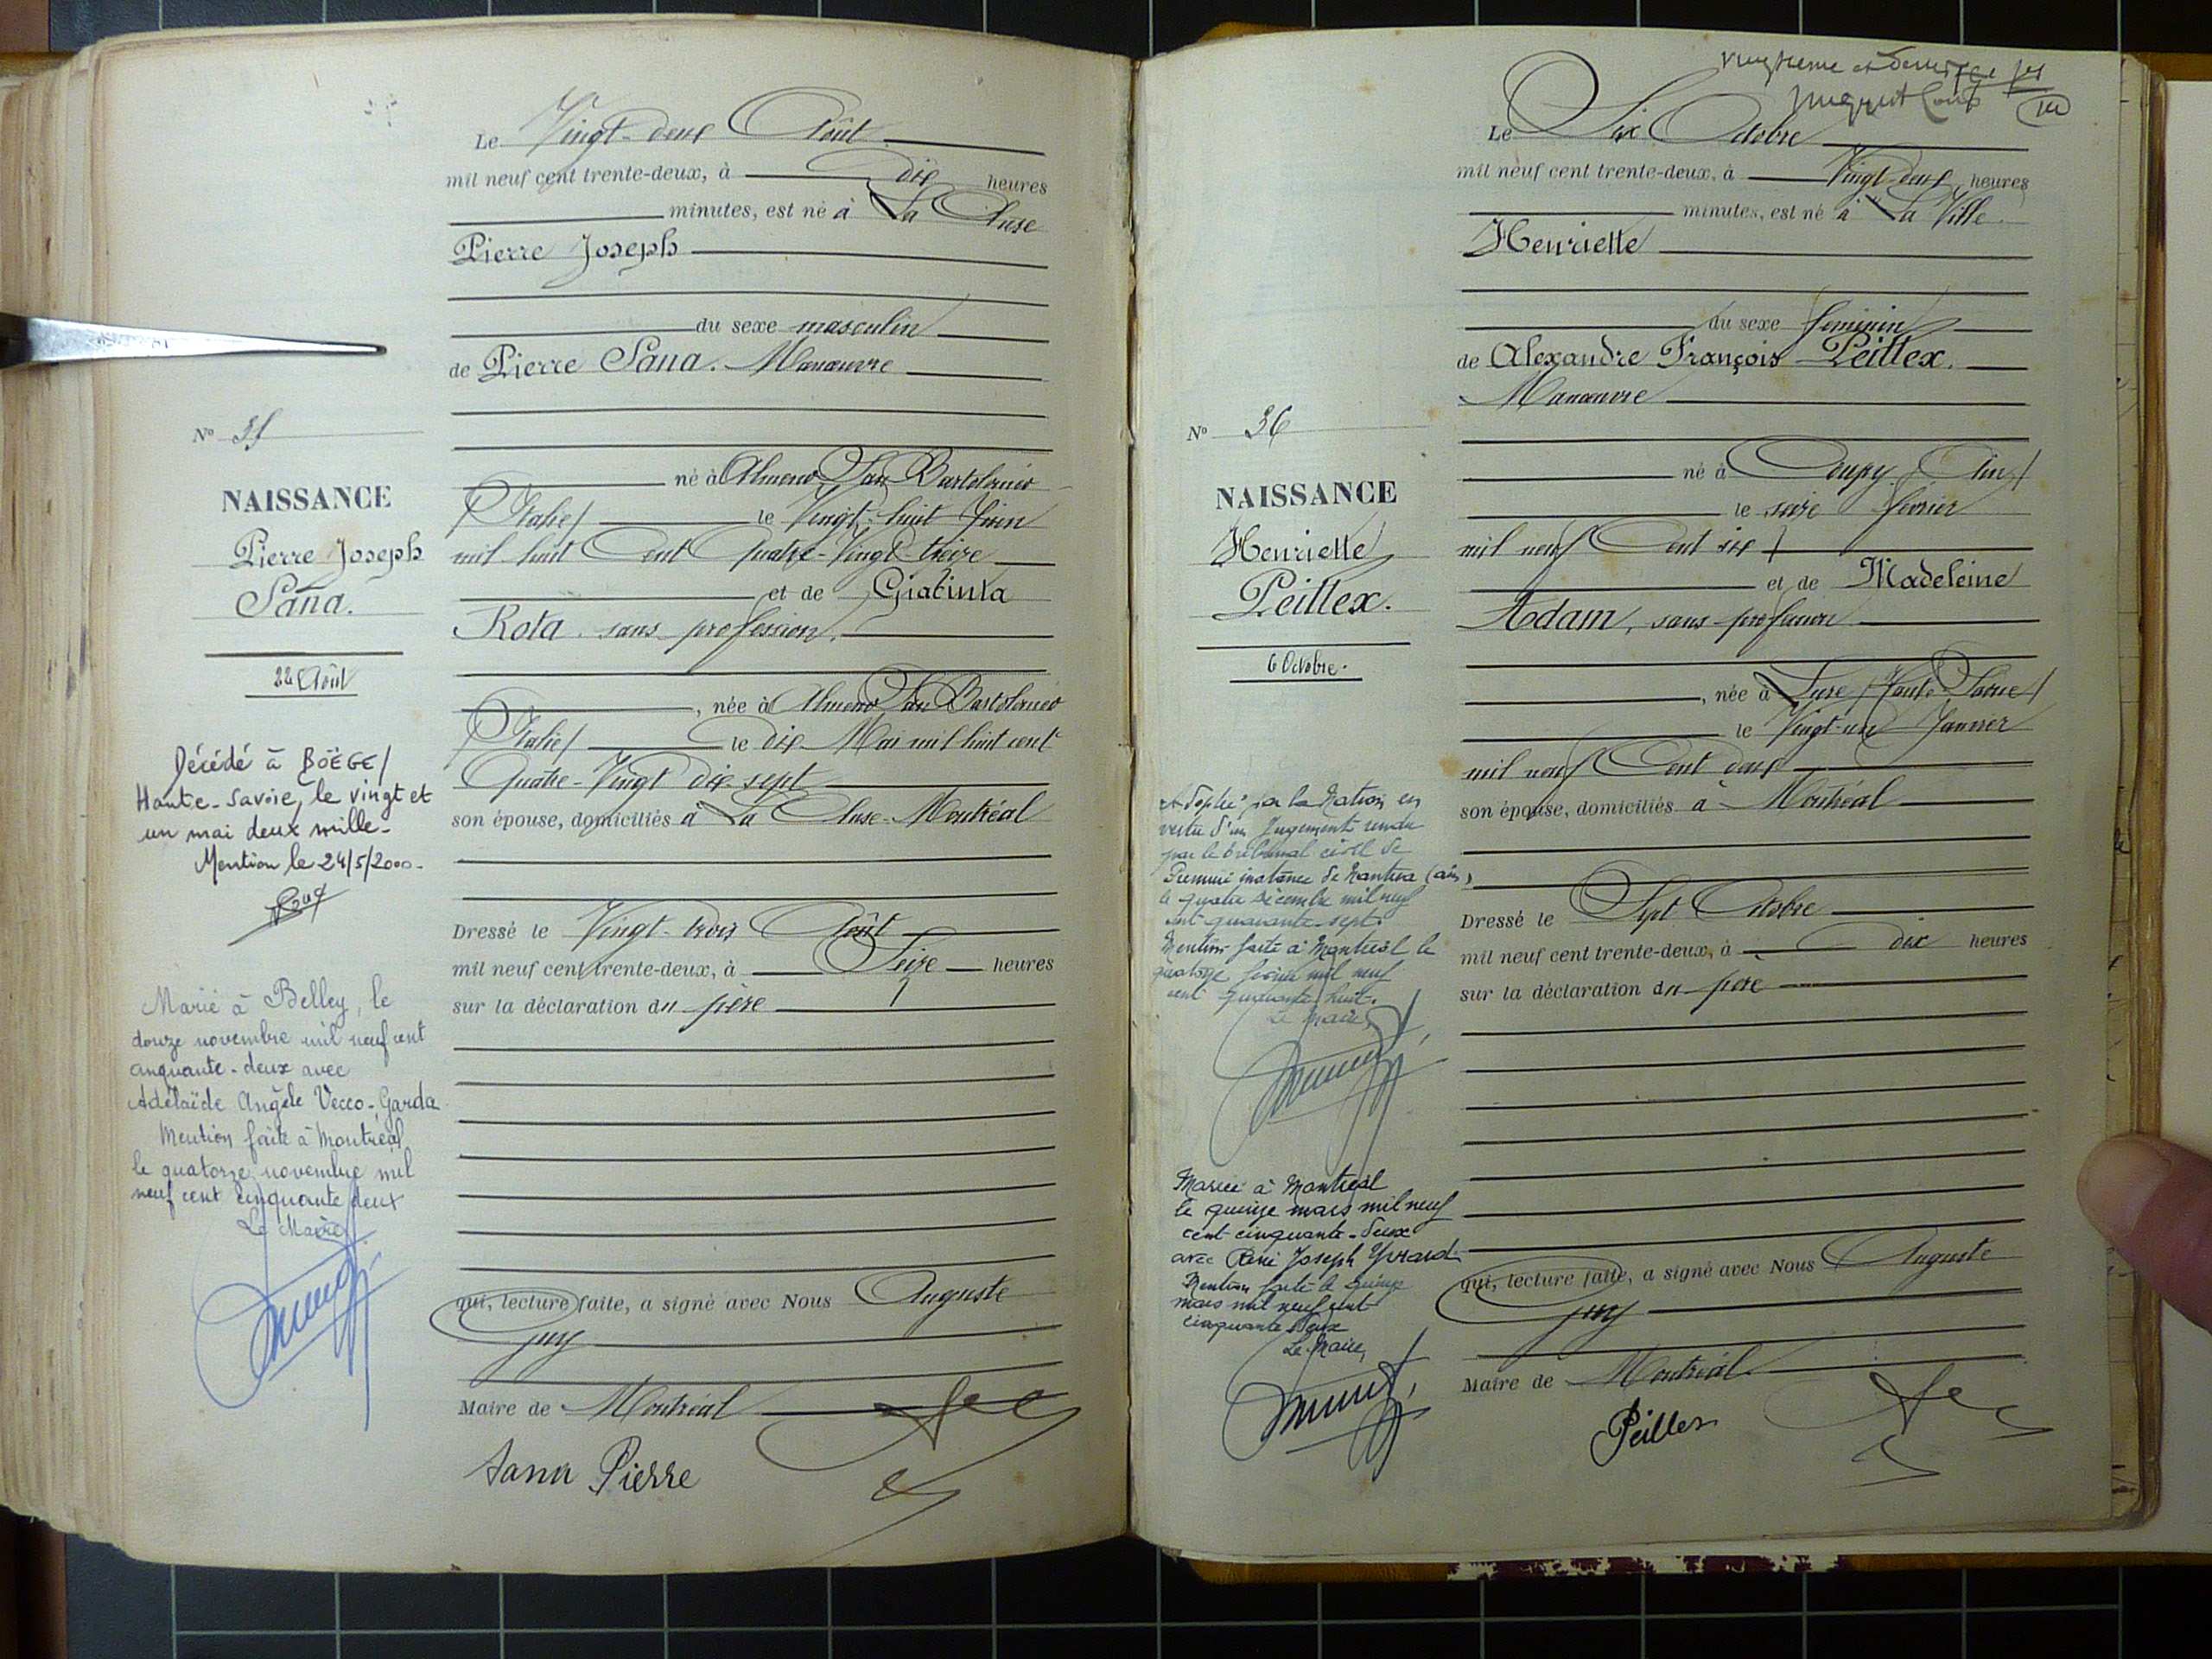 Le Vingt-deux Août
mil neuf cent trente-deux, à dix heures
minutes, est né à La Cluse
Pierre Joseph
du sexe masculin
de Pierre Sana. Manœuvre
né à Almeno San Bartoloméo
(Italie) le Vingt-huit Juin
mil huit Cent Quatre-Vingt-treize
et de Giacinta
Rota. sans profession.
, née à Almeno San Bartolomeo
(Italie) le dix Mai mil huit cent
Quatre-Vingt dix-sept
son épouse, domiciliés à La Cluse-Montréal
Dressé le Vingt-trois Août
mil neuf cent trente-deux, à Seize heures
sur la déclaration du père
qui, lecture faite, a signé avec Nous Auguste
Juy
Maire de Montréal
Sana Pierre
N° 35
NAISSANCE
Pierre Joseph
Sana.
22 Août
Décédé à BOËGE/
Haute-Savoie, le vingt et
un mai deux mille-
Mention le 24/5/2000-
Marié à Belley, le
douze novembre mil neuf cent
cinquante-deux avec
Adélaïde Angèle Vecco-Garda
Mention faite à Montréal
le quatorze novembre mil
neuf cent cinquante deux
Le Maire
vingtième et dernier
Le Six Octobre
mil neuf cent trente-deux, à Vingt-deux heures
minutes, est né à La Ville.
Henriette
du sexe féminin
de Alexandre François Peillex.
Manœuvre
né à Coupy (Ain)
le seize février
mil neuf Cent six
et de Madeleine
Adam, sans profession
, née à Lure (Haute-Saône)
le Vingt-un Janvier
mil neuf Cent deux
son épouse, domiciliés à Montréal
Dressé le Sept Octobre
mil neuf cent trente-deux, à dix heures
sur la déclaration du père
qui, lecture faite, a signé avec Nous Auguste
Juy
Maire de Montréal
Peillex
N° 36
NAISSANCE
Henriette
Peillex.
6 Octobre.
Adoptée par la Nation en
vertu d'un Jugement rendu
par le tribunal civil de
Première instance de Nantua (ain)
le quatre décembre mil neuf
cent quarante-sept.
Mention faite à Montréal le
quatorze février mil neuf
cent quarante huit.
Le Maire,
Mariée à Montréal
le quinze mars mil neuf
cent cinquante-deux
avec René Joseph Yvrard
Mention faite le quinze
mars mil neuf cent
cinquante deux
Le Maire,